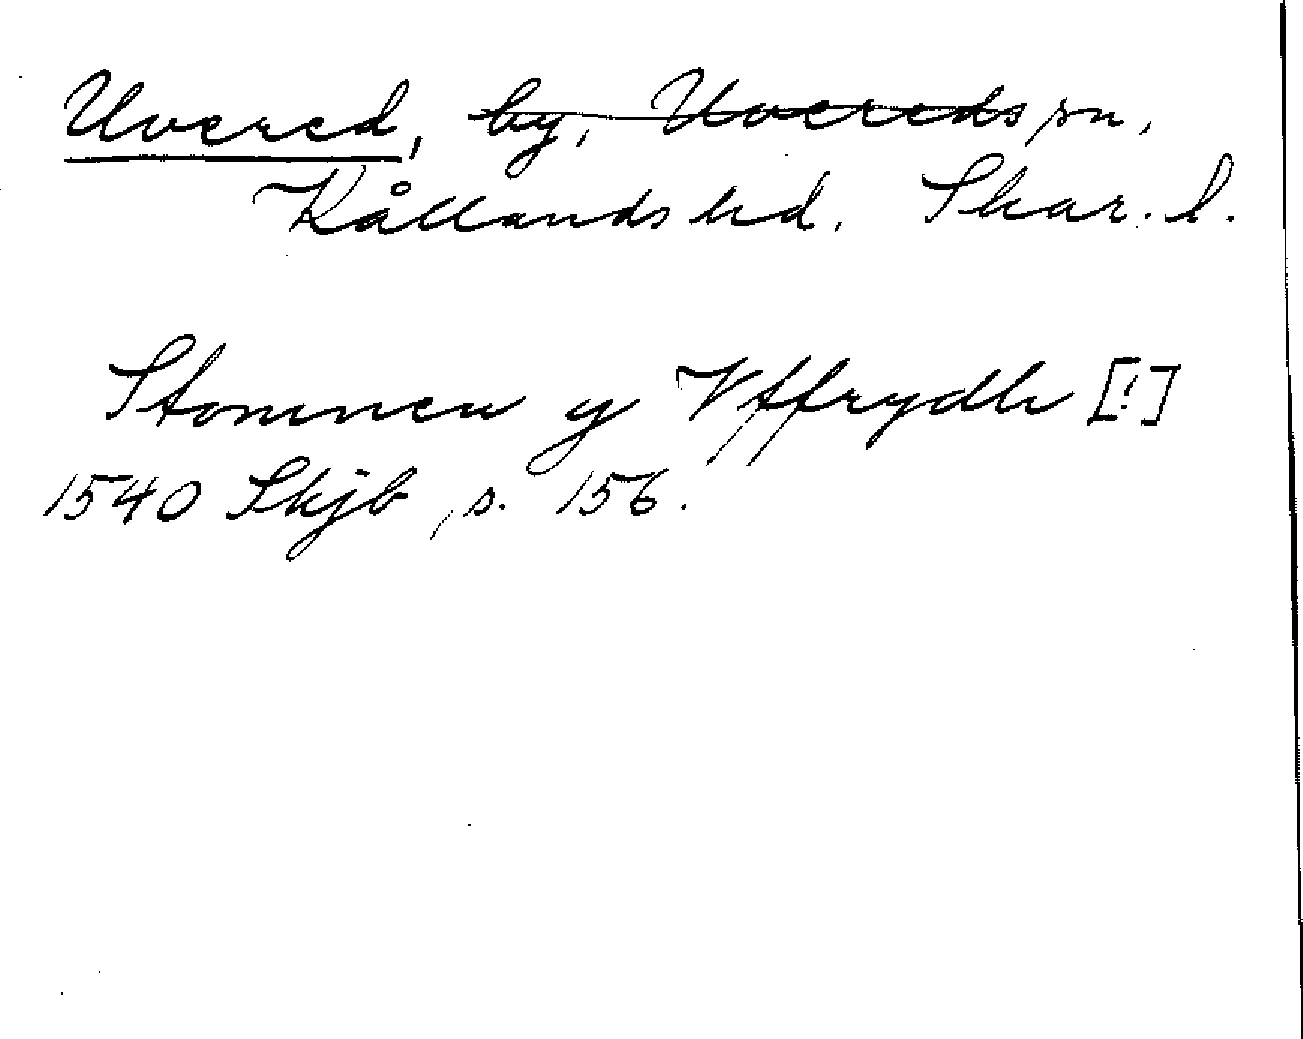 Uvered, by, Uvereds sn,
Kållands hd. Skar. l.
Stommen y Vffrydh [!]
1540 Skjb, s. 156.